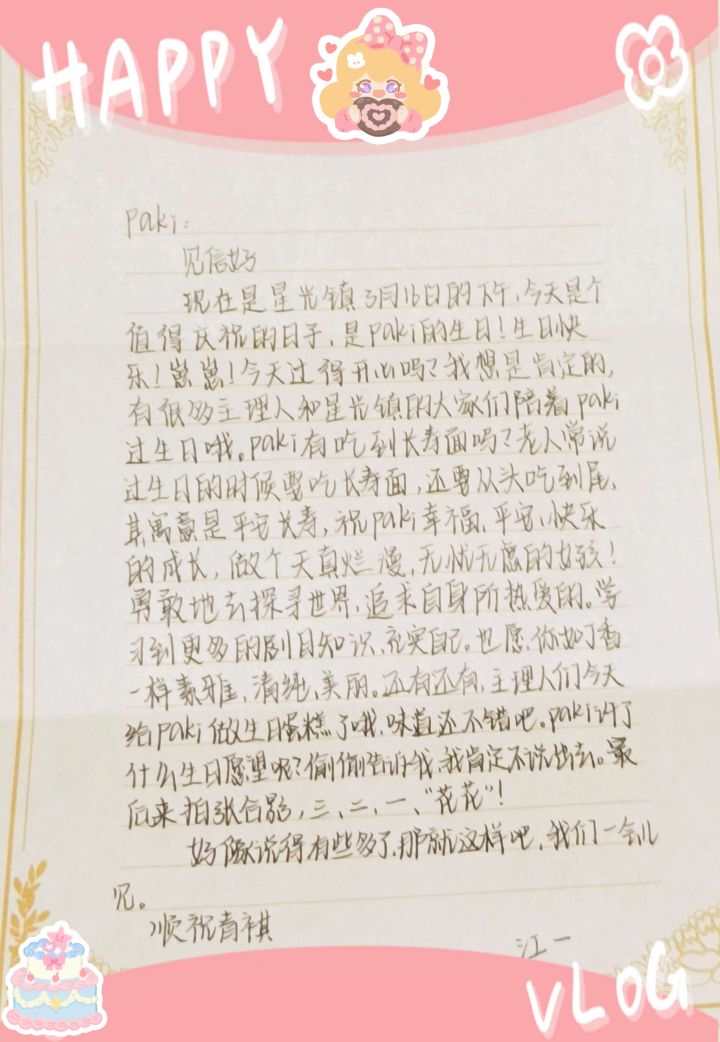 HAPPY
paki:
见信好
现在是星光镇3月16日的下午,今天是个
值得庆祝的日子,是paki的生日!生日快
乐!崽崽!今天过得开心吗?我想是肯定的,
有很多主理人和星光镇的大家们陪着paki
过生日哦。paki有吃到长寿面吗?老人常说
过生日的时候要吃长寿面,还要从头吃到尾,
其寓意是平安长寿,祝paki幸福、平安、快乐
的成长,做个天真烂漫,无忧无虑的女孩!
勇敢地去探寻世界,追求自身所热爱的。学
习到更多的剧目知识,充实自己。也愿你如丁香
一样素雅,清纯、美丽。还有还有,主理人们今天
给paki做生日蛋糕了哦,味道还不错吧。paki许了
什么生日愿望呢?偷偷告诉我,我肯定不说出去。最
后来拍张合影,三、二、一、"花花"!
好像说得有些多了,那就这样吧,我们一会儿
见。
顺祝春祺
江一
VLOG